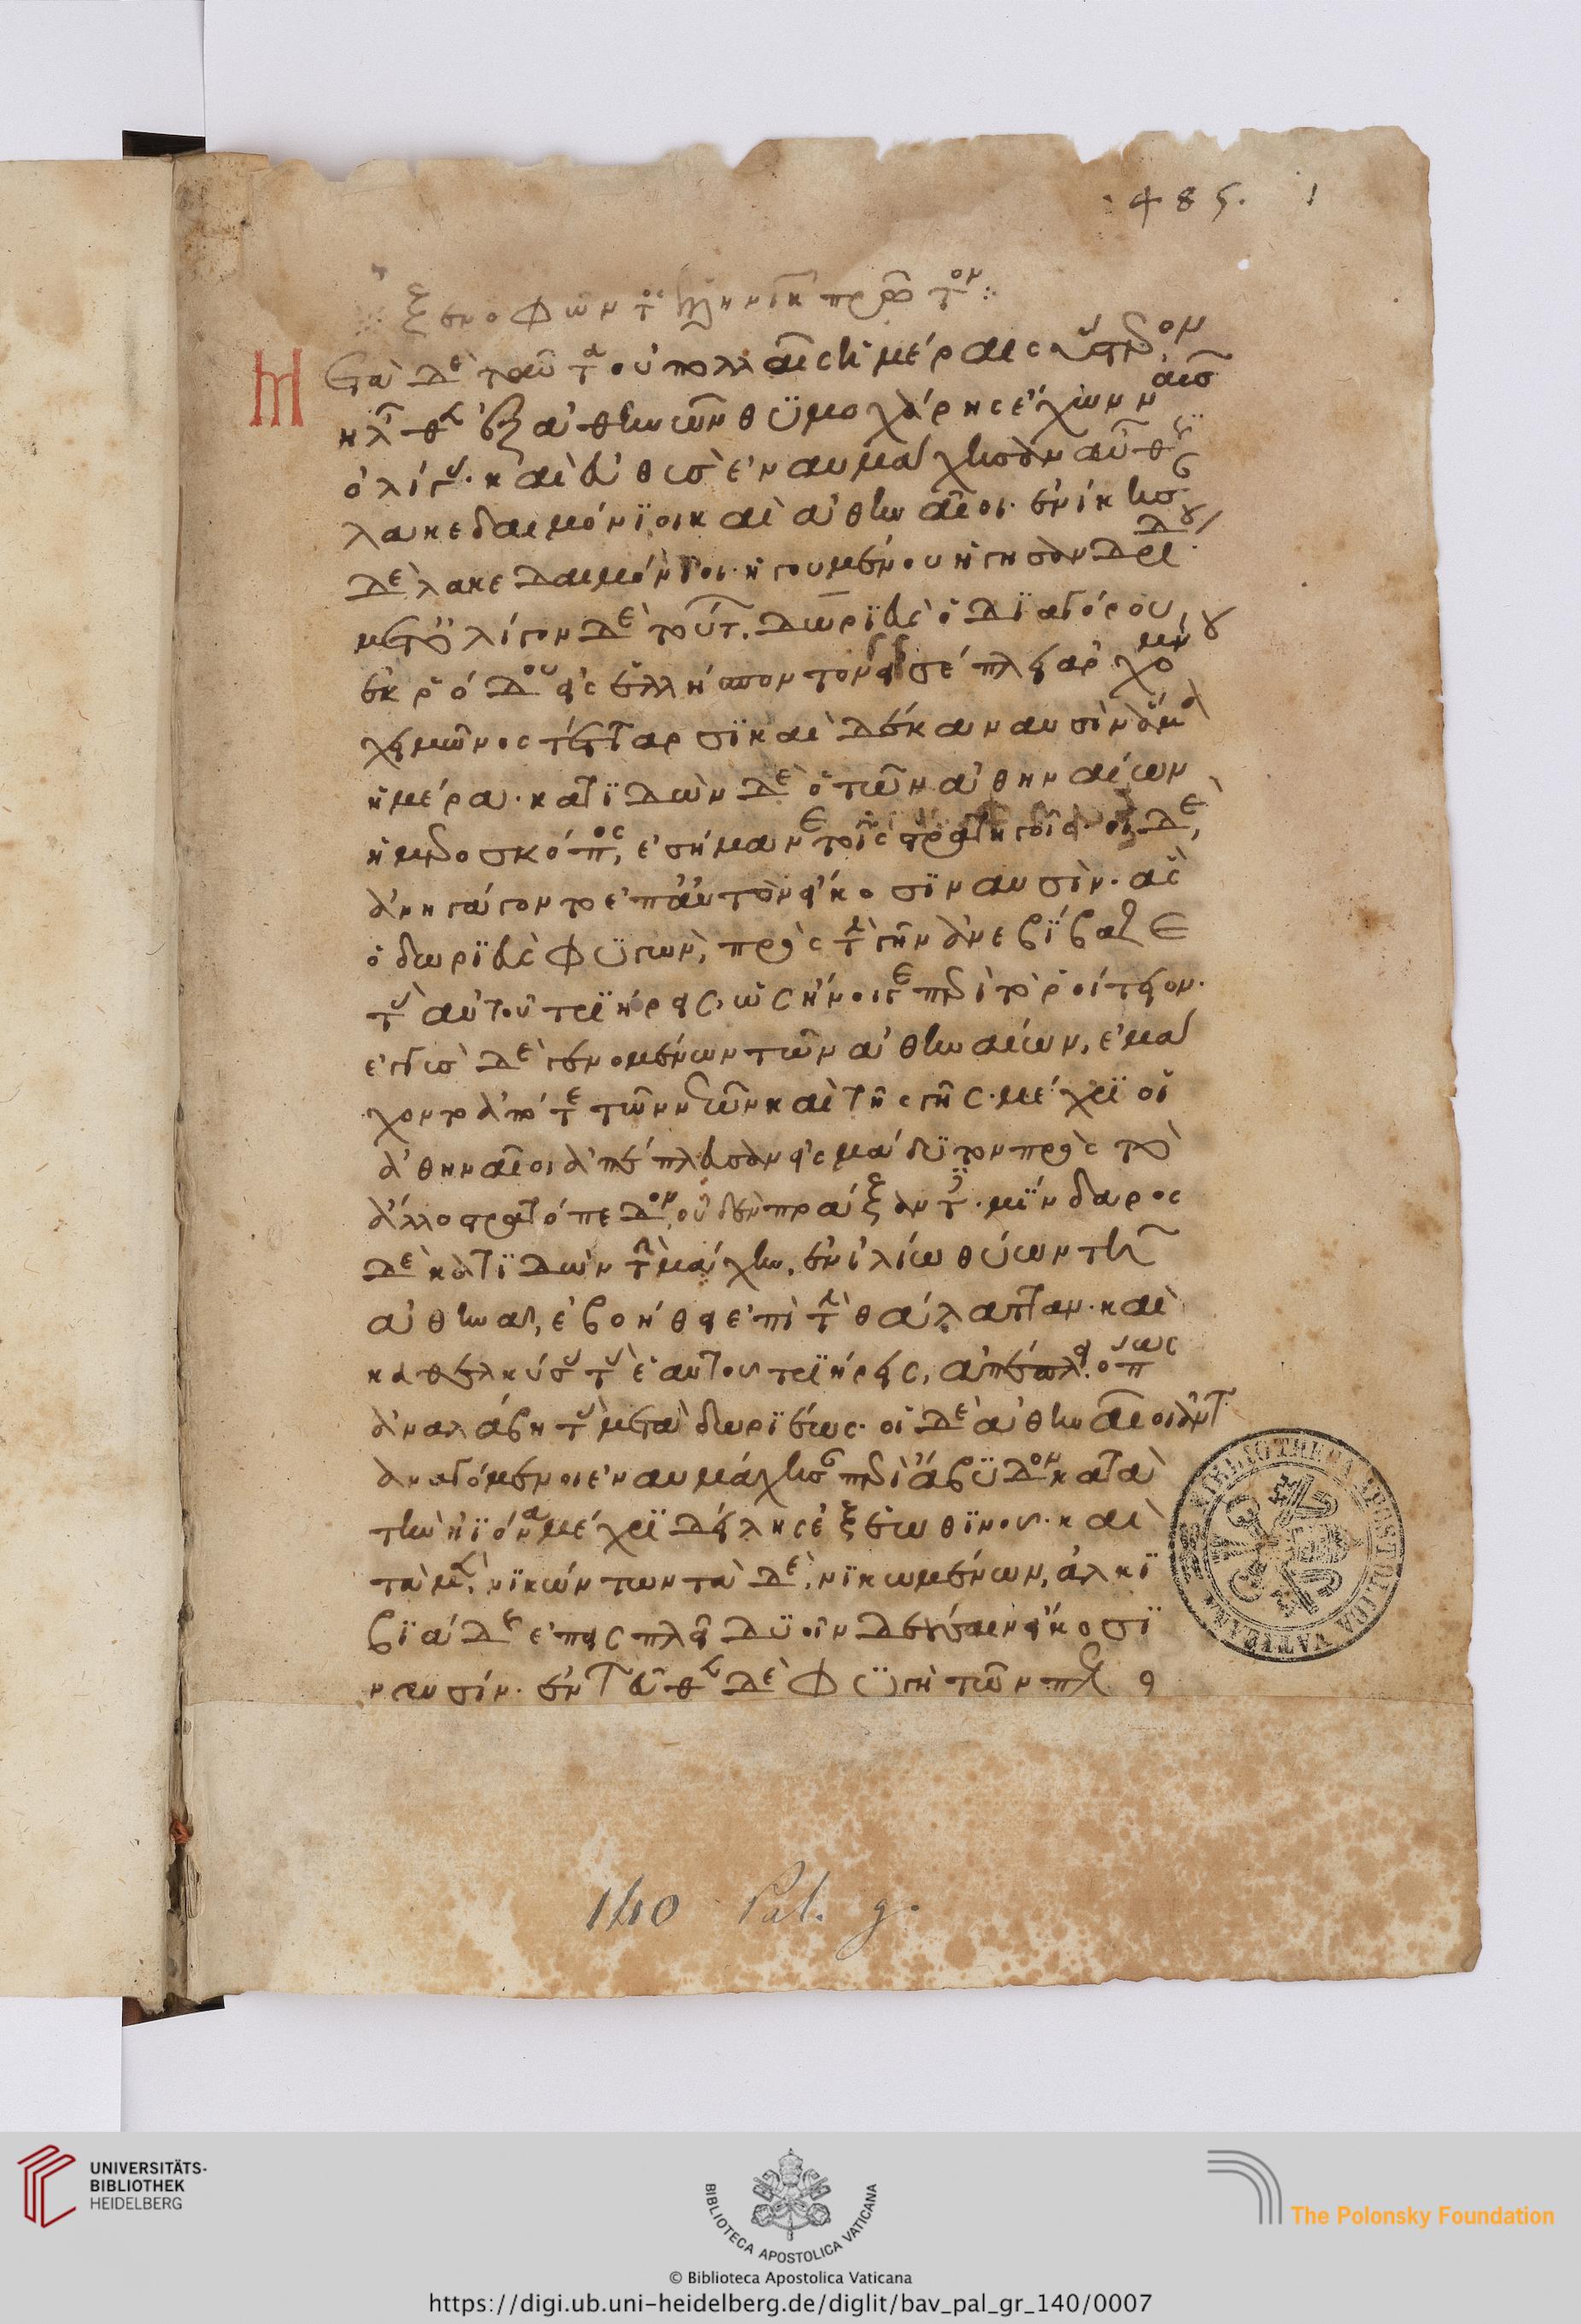 485. 1
ξενοφῶντος ἑλληνικῶν πρῶτον:
Μετὰ δὲ ταῦτα οὐ πολλαῖς ἡμέραις ὕστερον
ἦλθεν ἐξ ἀθηνῶν θυμοχάρης ἔχων ναῦς
ὀλίγας. καὶ εὐθὺς ἐναυμάχησαν αὖθις
λακεδαιμόνιοι καὶ ἀθηναῖοι. ἐνίκησαν
δὲ λακεδαιμόνιοι. ἡγουμένου ἡγησανδρίδου.
μετ' ὀλίγον δὲ τούτων, δωριεὺς ὁ διαγόρου,
ἐκ ῥόδου εἰς ἑλλήσποντον εἰσέπλει ἀρχομένου
χειμῶνος τέτταρσι καὶ δέκα ναυσὶν ἅμα
ἡμέρα. κατιδὼν δὲ ὁ τῶν ἀθηναίων
ἡμεροσκόπος, ἐσήμανε τοῖς στρατηγοῖς. οἱ δὲ,
ἀνηγάγοντο ἐπ' αὐτὸν εἴκοσι ναυσὶν. ἃς
ὁ δωριεὺς φυγὼν, πρὸς τὴν γῆν ἀνεβίβαζε
τὰς αὐτοῦ τριήρεις, ὡς ἤνοιγε περὶ τὸ ῥοίτειον.
ἐγγὺς δὲ γενομένων τῶν ἀθηναίων, ἐμά
χοντο ἀπό τε τῶν νεῶν καὶ τῆς γῆς. μέχρι οἱ
ἀθηναῖοι ἀπέπλευσαν εἰς μάδυτον πρὸς τὸ
ἄλλο στρατόπεδον, οὐδὲν πράξαντες. μίνδαρος
δὲ κατιδὼν τὴν μάχην, ἐν ἰλίω θύων τῆ
ἀθηνᾶ, ἐβοήθει ἐπὶ τὴν θάλατταν. καὶ
καθελκύσας τὰς ἑαυτοῦ τριήρεις, ἀπέπλει, ὅπως
ἀναλάβη τὰς μετὰ δωριέως. οἱ δὲ ἀθηναῖοι ἀντ
αναγόμενοι ἐναυμάχησαν περὶ ἄβυδον κατὰ
τὴν ἠϊόνα μέχρι δείλης ἐξ ἑωθινοῦ. καὶ
τὰ μὲν, νικώντων τὰ δὲ, νικωμένων, ἀλκι
βιάδης ἐπεισπλεῖ δυοῖν δεούσαιν εἴκοσι
ναυσίν. ἐντεῦθεν δὲ φυγὴ τῶν πελ ο
140 Pal. g.
BIBLIOTHECA APOSTOLICA VATICANA
UNIVERSITÄTS-
BIBLIOTHEK
HEIDELBERG
BIBLIOTECA APOSTOLICA VATICANA
The Polonsky Foundation
© Biblioteca Apostolica Vaticana
https://digi.ub.uni-heidelberg.de/diglit/bav_pal_gr_140/0007